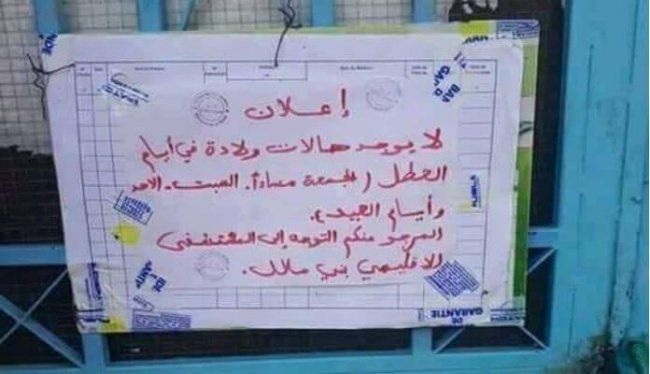 إعلان
لا يوجد حالات ولادة في أيام
العطل (الجمعة مساءاً. السبت. الاحد
وأيام العيد).
المرجو منكم التوجه إلى المستشفى
الاقليمي بني ملال.
GARANTIE
DE